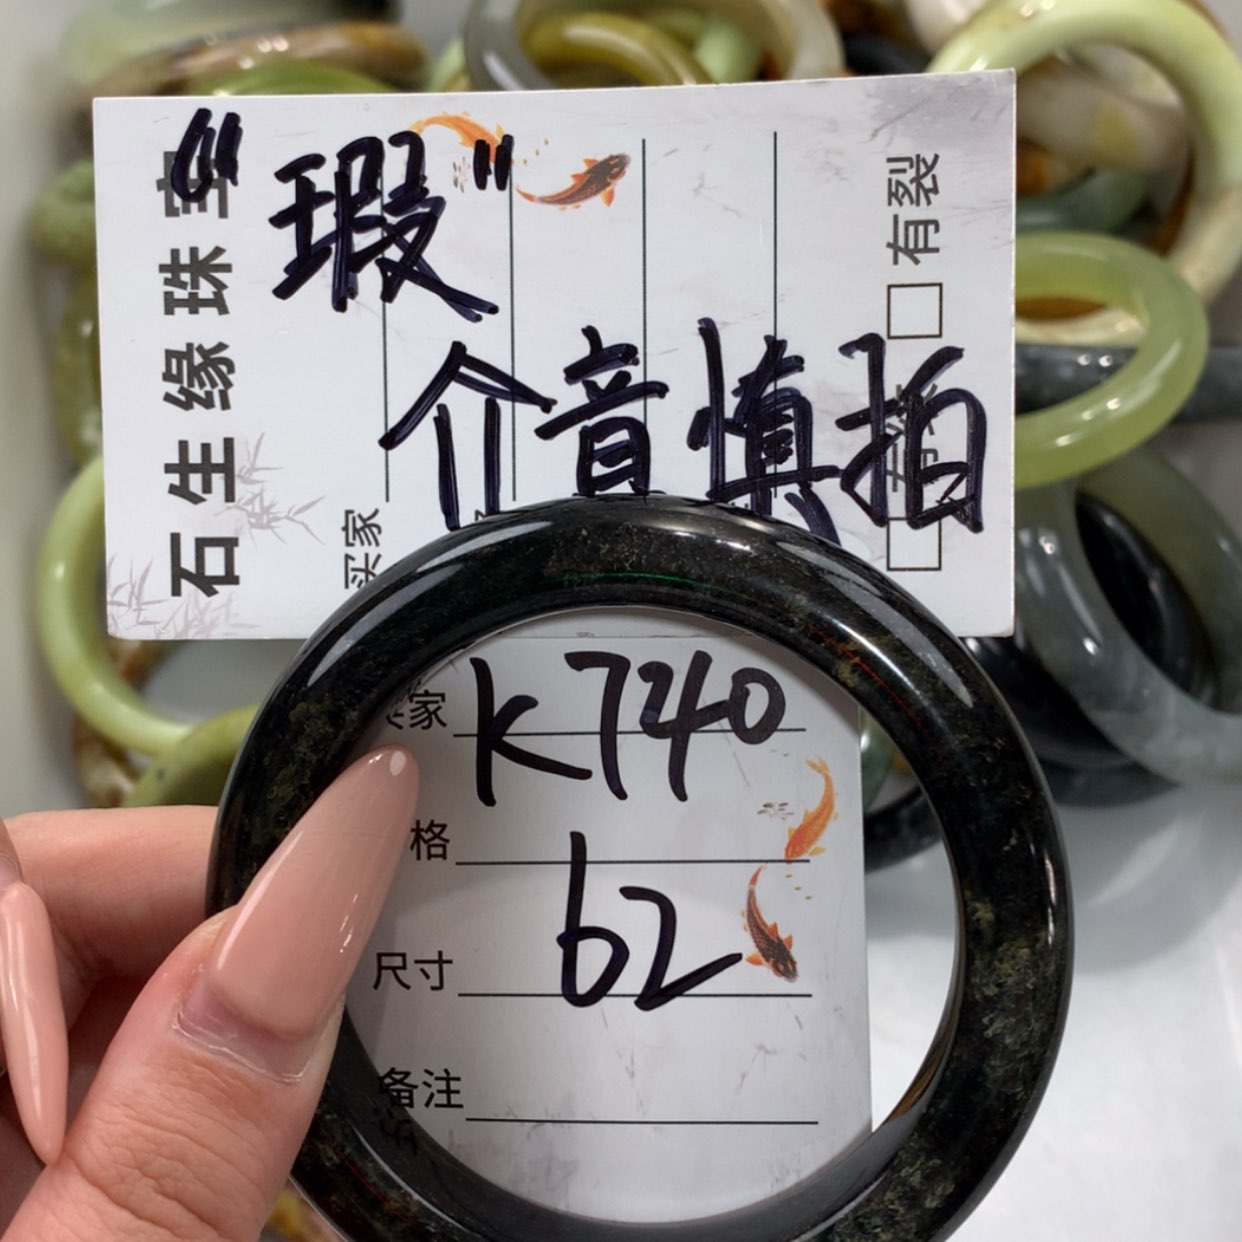 石生缘珠宝
“瑕”
介音慎拍
买家
有裂
K740
格
62
尺寸
备注